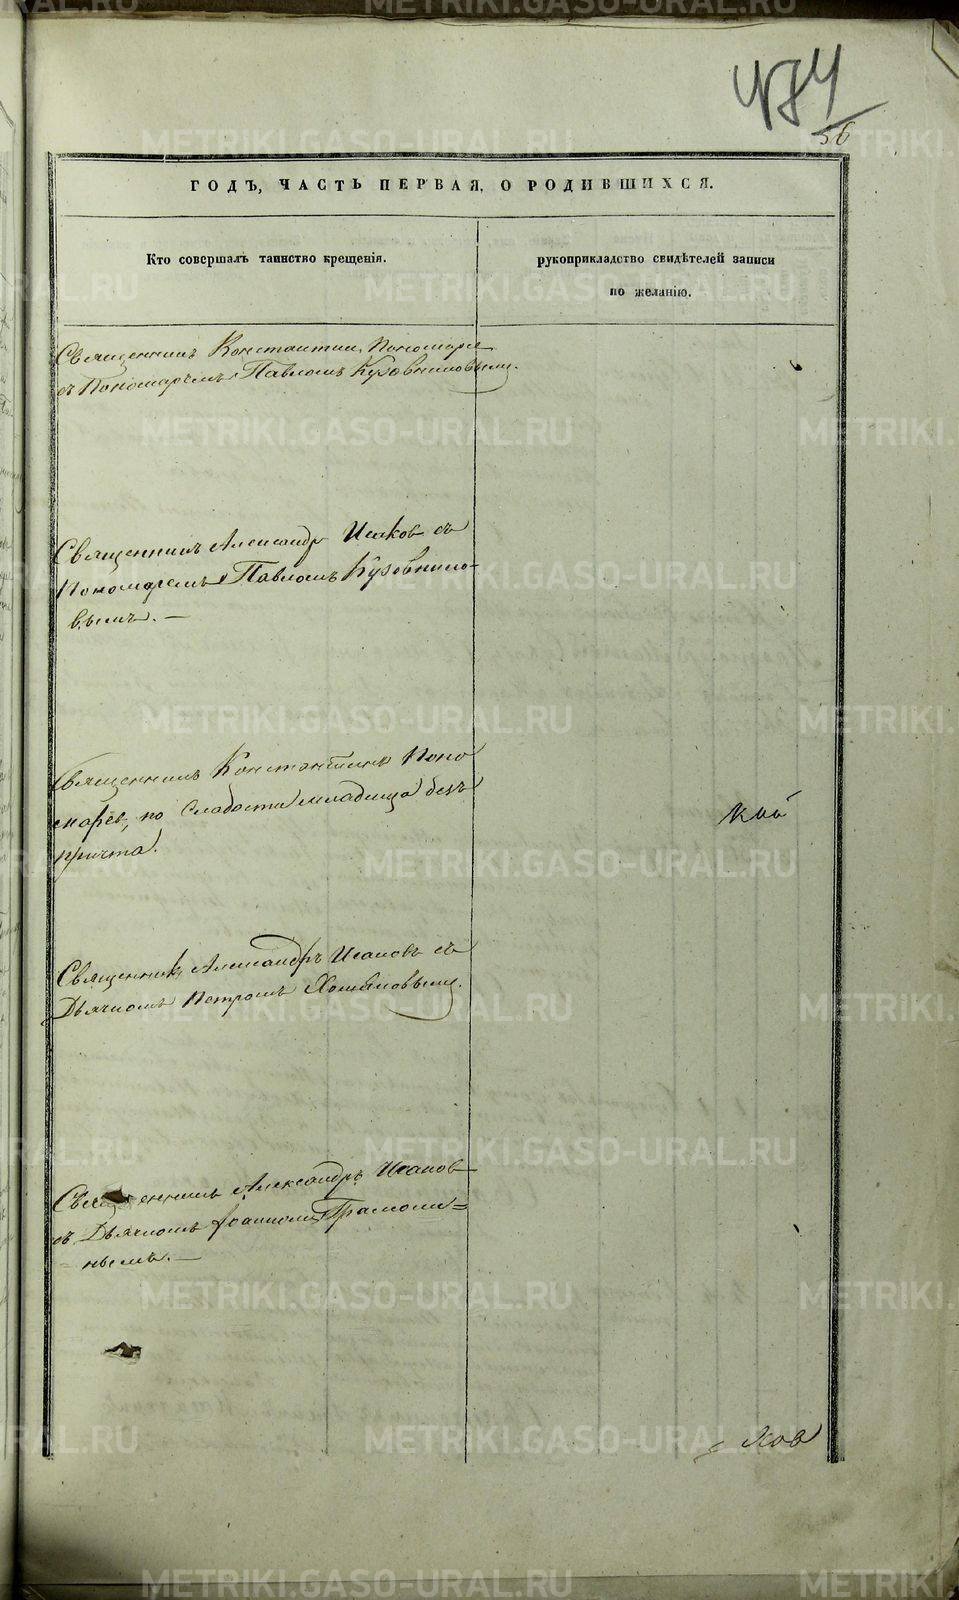 474
56
ГОДЪ, ЧАСТЬ ПЕРВАЯ, О РОДИВШИХСЯ.
Кто совершалъ таинство крещенія.
рукоприкладство свидѣтелей записи
по желанію.
Священникъ Константин Пономаре
съ Пономаремъ Павломъ Кузовниковымъ.
Священникъ Александр Исаков съ
Пономаремъ Павломъ Кузовнико-
вымъ. —
Священникъ Константинъ Поно
марев, по слабости младенца безъ
причта.
кой
Священникъ Александръ Исаковъ съ
Дьячкомъ Петромъ Хомяковымъ.
Священникъ Александръ Исаков
съ Дьячкомъ Іоанномъ
нымъ. —
ков
METRIKI.GASO-URAL.RU